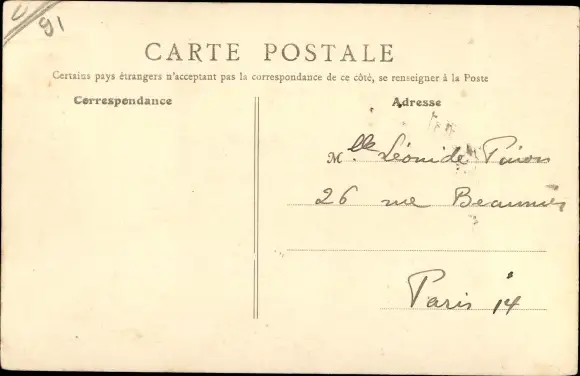 91
CARTE POSTALE
Certains pays étrangers n'acceptant pas la correspondance de ce côté, se renseigner à la Poste
Correspondance
Adresse
Mlle Léonide
26 rue Beaunier
Paris 14